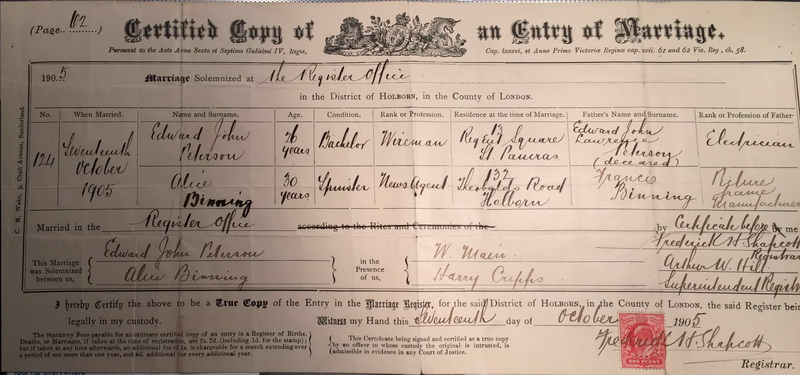 (Page 112)
Certified Copy of an Entry of Marriage.
Pursuant to the Acts Anno Sexto et Septimo Gulielmi IV, Regis, Cap. lxxxvi, et Anno Primo Victoriæ Reginæ cap. xxii. 61 and 62 Vic. Reg, ch. 58.
1905 Marriage Solemnized at the Register Office
in the District of HOLBORN, in the County of LONDON.
No. When Married. Name and Surname. Age. Condition. Rank or Profession. Residence at the time of Marriage. Father's Name and Surname. Rank or Profession of Father
124 Seventeenth October 1905
Edward John Peterson 26 years Bachelor Wireman 13 Regent Square St. Pancras Edward John Lawrence Peterson (deceased) Electrician
Alice Binning 30 years Spinster News Agent 132 Theobalds Road Holborn Francis Binning Picture frame Manufacturer
Married in the Register Office according to the Rites and Ceremonies of the by Certificate before by me
This Marriage was Solemnized between us,
Edward John Peterson
Alice Binning
in the Presence of us,
W. Main
Harry Cripps
Frederick H. Shapcott Registrar
Arthur W. Hill
Superintendent Registrar
I hereby Certify the above to be a True Copy of the Entry in the Marriage Register, for the said District of HOLBORN, in the County of LONDON, the said Register being
legally in my custody. Witness my Hand this Seventeenth day of October 1905
The Statutory Fees payable for an ordinary certified copy of an entry in a Register of Births,
Deaths, or Marriages, if taken at the time of registration, are 2s. 7d. (including 1d. for the stamp);
but if taken at any time afterwards, an additional fee of 1s. is chargeable for a search extending over
a period of not more than one year, and 6d. additional for every additional year.
This Certificate being signed and certified as a true copy
by an officer to whose custody the original is intrusted, is
admissible in evidence in any Court of Justice.
Frederick H. Shapcott
Registrar.
ONE PENNY